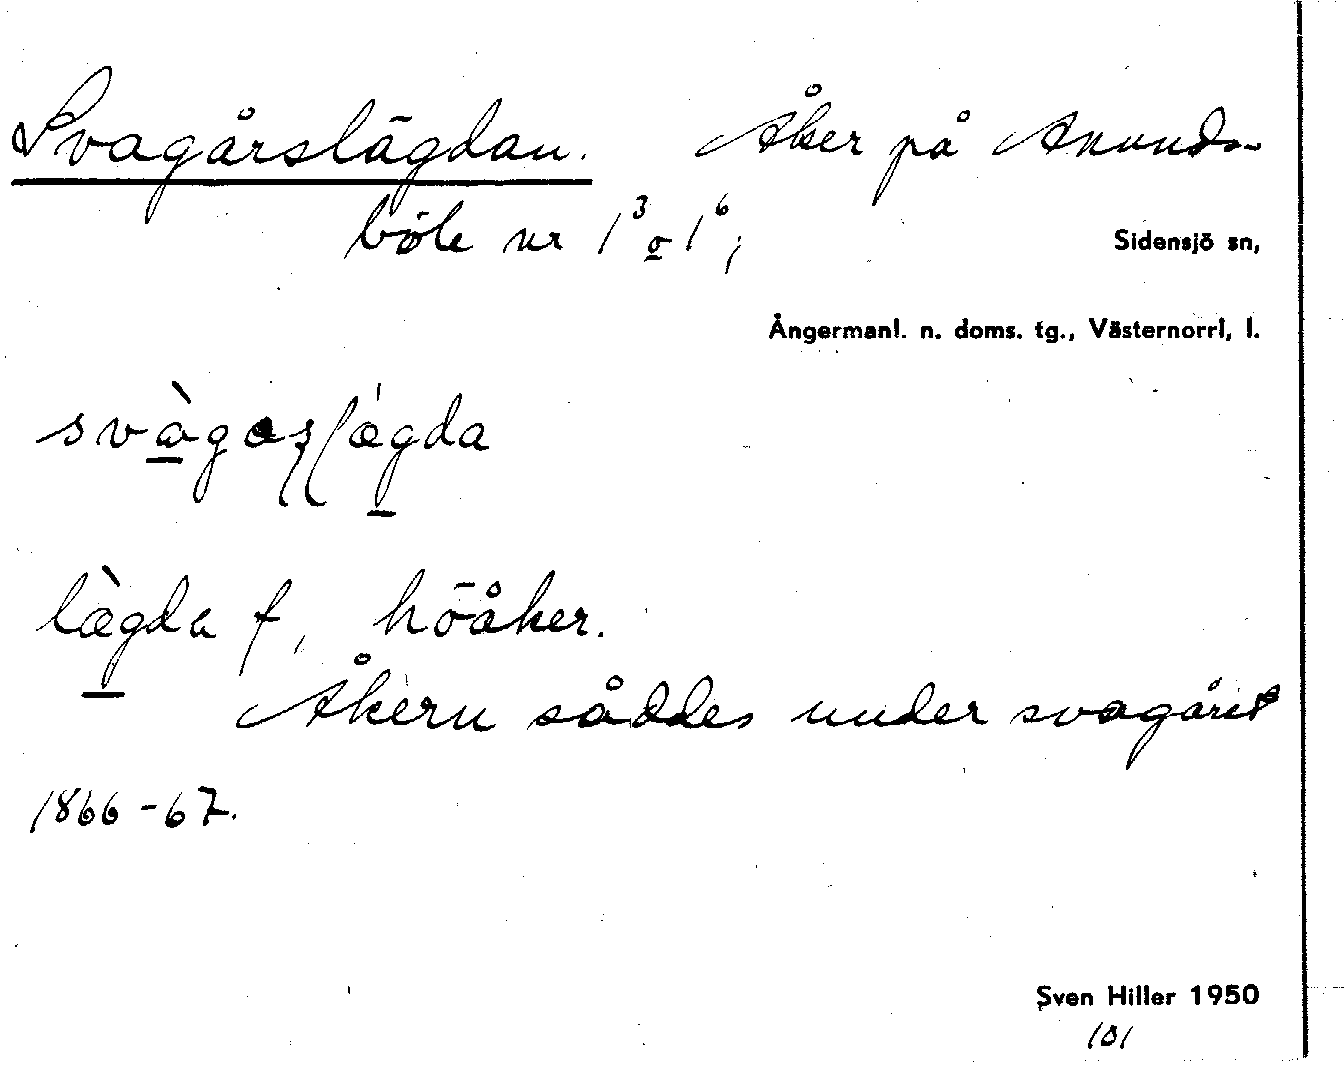 Svagårslägdan. Åker på Anunds-
böle nr 1³ o 1⁶;
Sidensjö sn,
Ångermanl. n. doms. tg., Västernorrl, l.
lægda f, höåker.
Åkern såddes under svagåret
1866-67.
Sven Hiller 1950
101